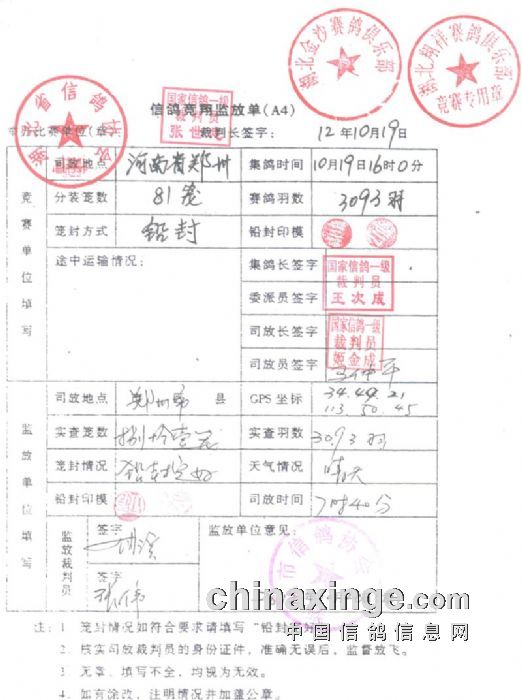 湖北金沙赛鸽俱乐部
湖北翔祥赛鸽俱乐部
竞赛专用章
湖北省信鸽协会
国家信鸽一级
裁判员
信鸽竞翔监放单(A4)
裁判长签字:
12年10月19日
司放地点 河南省郑州 集鸽时间 10月19日16时0分
分装笼数 81笼 赛鸽羽数 3093羽
笼封方式 铅封 铅封印模
竞赛单位填写
途中运输情况: 集鸽长签字
国家信鸽一级
裁判员
王次成
委派员签字
司放长签字
国家信鸽一级
裁判员
姬金成
司放员签字
司放地点 郑州市 县 GPS坐标 34.49.21
113.50.45
实查笼数 捌拾壹笼 实查羽数 3093羽
笼封情况 铅封完好 天气情况 晴天
铅封印模 司放时间 7时40分
监放单位填写
监放裁判员
签字
监放单位意见:
签字
市信鸽协会
chinaxinge.com
中国信鸽信息网
注: 1 笼封情况如符合要求请填写"铅封完好"
2. 核实司放裁判员的身份证件，准确无误后，监督放飞。
3. 无章、填写不全，均视为无效。
4. 如有涂改，注明情况并加盖公章。